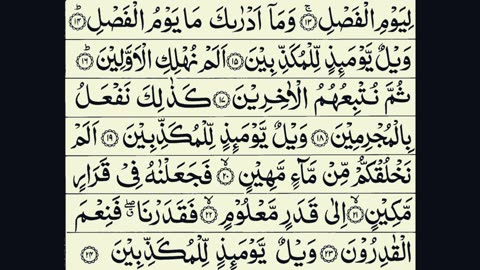 لِيَوْمِ الْفَصْلِ ۝١٣ وَمَآ اَدْرٰىكَ مَا يَوْمُ الْفَصْلِ ۝١٤
وَيْلٌ يَّوْمَىِٕذٍ لِّلْمُكَذِّبِيْنَ ۝١٥ اَلَمْ نُهْلِكِ الْاَوَّلِيْنَ ۝١٦
ثُمَّ نُتْبِعُهُمُ الْاٰخِرِيْنَ ۝١٧ كَذٰلِكَ نَفْعَلُ
بِالْمُجْرِمِيْنَ ۝١٨ وَيْلٌ يَّوْمَىِٕذٍ لِّلْمُكَذِّبِيْنَ ۝١٩ اَلَمْ
نَخْلُقْكُّمْ مِّنْ مَّآءٍ مَّهِيْنٍ ۝٢٠ فَجَعَلْنٰهُ فِيْ قَرَارٍ
مَّكِيْنٍ ۝٢١ اِلٰى قَدَرٍ مَّعْلُوْمٍ ۝٢٢ فَقَدَرْنَا ۖ فَنِعْمَ
الْقٰدِرُوْنَ ۝٢٣ وَيْلٌ يَّوْمَىِٕذٍ لِّلْمُكَذِّبِيْنَ ۝٢٤